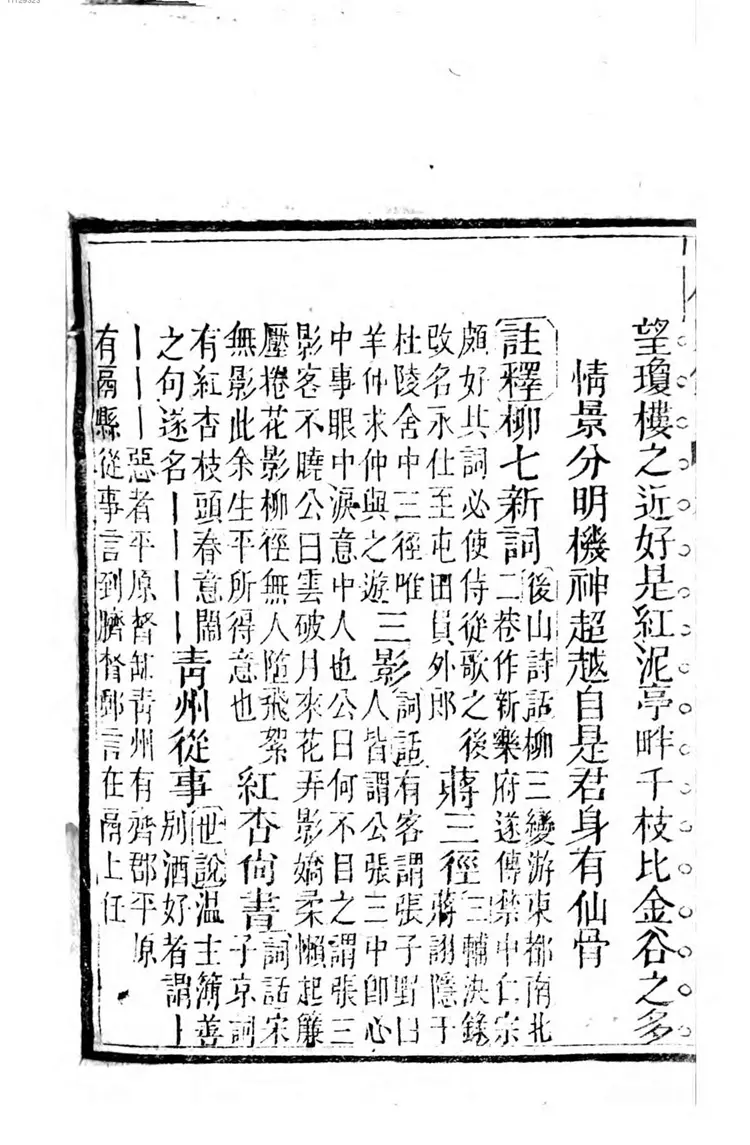 11129323
望瓊樓之近好是紅泥亭畔千枝比金谷之多
情景分明機神超越自是君身有仙骨
註釋柳七新詞後山詩話柳三變游東都南北
二巷作新樂府遂傳禁中仁宗
頗好其詞必使侍從歌之後
改名永仕至屯田員外郎
蔣三徑三輔決錄
蔣詡隱于
杜陵舍中三徑唯
羊仲求仲與之遊
三影詞話有客謂張子野曰
人皆謂公張三中卽心
中事眼中淚意中人也公曰何不目之謂張三
影客不曉公曰雲破月來花弄影嬌柔懶起簾
壓捲花影柳徑無人隨飛絮
無影此余生平所得意也
紅杏尙書詞話宋
子京詞
有紅杏枝頭春意鬧
之句遂名丨丨丨丨
青州從事世說溫主簿善
別酒好者謂丨
丨丨丨惡者平原督郵青州有齊郡平原
有鬲縣從事言到臍督郵言在鬲上住